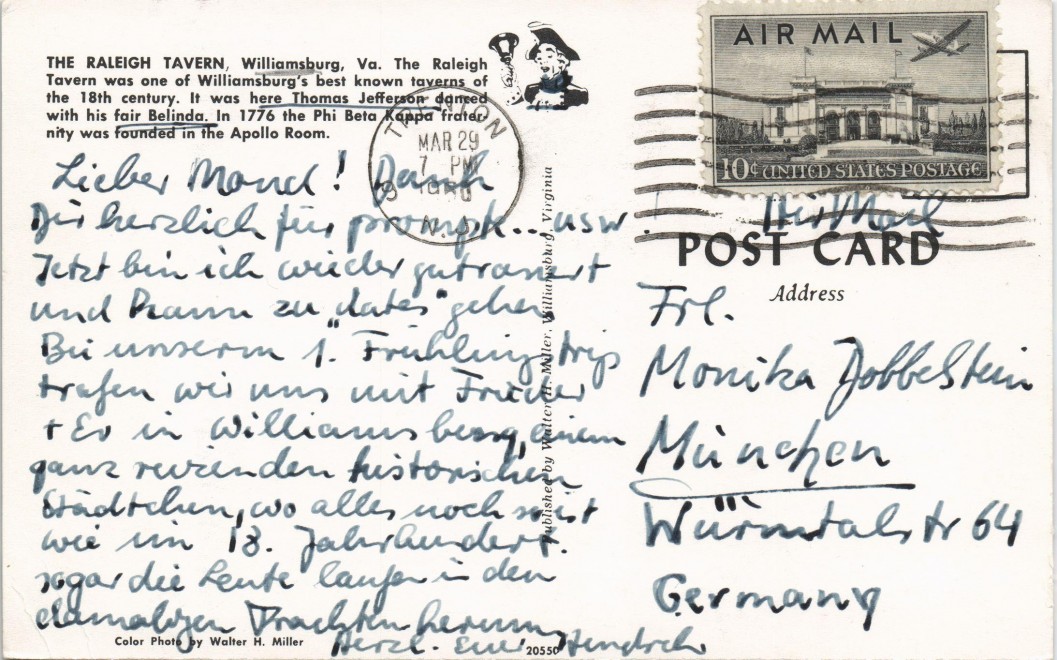 THE RALEIGH TAVERN, Williamsburg, Va. The Raleigh
Tavern was one of Williamsburg's best known taverns of
the 18th century. It was here Thomas Jefferson danced
with his fair Belinda. In 1776 the Phi Beta Kappa frater-
nity was founded in the Apollo Room.
Lieber Mond! Dank
Dir herzlich für prompte... usw.
Jetzt bin ich wieder
und kann zu „dates" gehen
Bei unserm 1. Frühling trip
trafen wir uns mit Frieder
+ Ev in Williamsburg, einem
ganz reizenden historischen
Städtchen, wo alles noch so ist
wie im 18. Jahrhundert.
sogar die Leute laufen in den
damaligen Trachten herum
Herzl. Euer Hendrik
Color Photo by Walter H. Miller
20550
Published by Walter H. Miller, Williamsburg, Virginia
TRENTON
MAR 29
7 PM
N.J.
AIR MAIL
10¢ UNITED STATES POSTAGE
Air Mail
POST CARD
Address
Frl.
Monika Dobbelstein
München
Würmtalstr 64
Germany